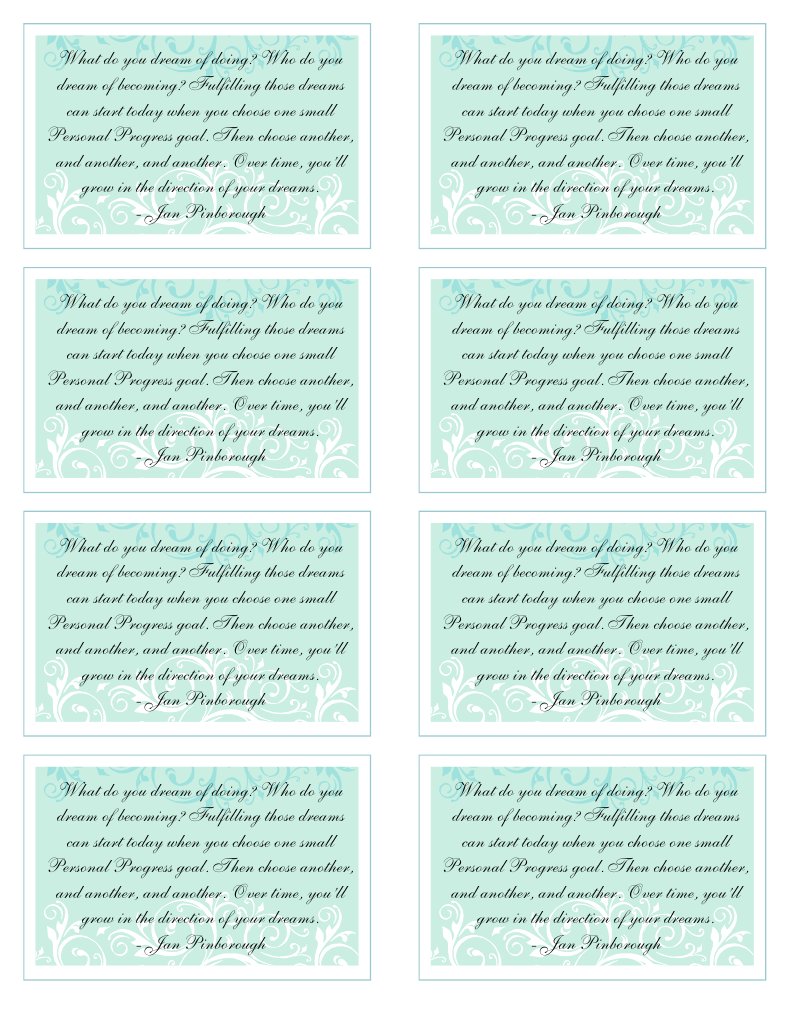 What do you dream of doing? Who do you
dream of becoming? Fulfilling those dreams
can start today when you choose one small
Personal Progress goal. Then choose another,
and another, and another. Over time, you'll
grow in the direction of your dreams.
- Jan Pinborough
What do you dream of doing? Who do you
dream of becoming? Fulfilling those dreams
can start today when you choose one small
Personal Progress goal. Then choose another,
and another, and another. Over time, you'll
grow in the direction of your dreams.
- Jan Pinborough
What do you dream of doing? Who do you
dream of becoming? Fulfilling those dreams
can start today when you choose one small
Personal Progress goal. Then choose another,
and another, and another. Over time, you'll
grow in the direction of your dreams.
- Jan Pinborough
What do you dream of doing? Who do you
dream of becoming? Fulfilling those dreams
can start today when you choose one small
Personal Progress goal. Then choose another,
and another, and another. Over time, you'll
grow in the direction of your dreams.
- Jan Pinborough
What do you dream of doing? Who do you
dream of becoming? Fulfilling those dreams
can start today when you choose one small
Personal Progress goal. Then choose another,
and another, and another. Over time, you'll
grow in the direction of your dreams.
- Jan Pinborough
What do you dream of doing? Who do you
dream of becoming? Fulfilling those dreams
can start today when you choose one small
Personal Progress goal. Then choose another,
and another, and another. Over time, you'll
grow in the direction of your dreams.
- Jan Pinborough
What do you dream of doing? Who do you
dream of becoming? Fulfilling those dreams
can start today when you choose one small
Personal Progress goal. Then choose another,
and another, and another. Over time, you'll
grow in the direction of your dreams.
- Jan Pinborough
What do you dream of doing? Who do you
dream of becoming? Fulfilling those dreams
can start today when you choose one small
Personal Progress goal. Then choose another,
and another, and another. Over time, you'll
grow in the direction of your dreams.
- Jan Pinborough